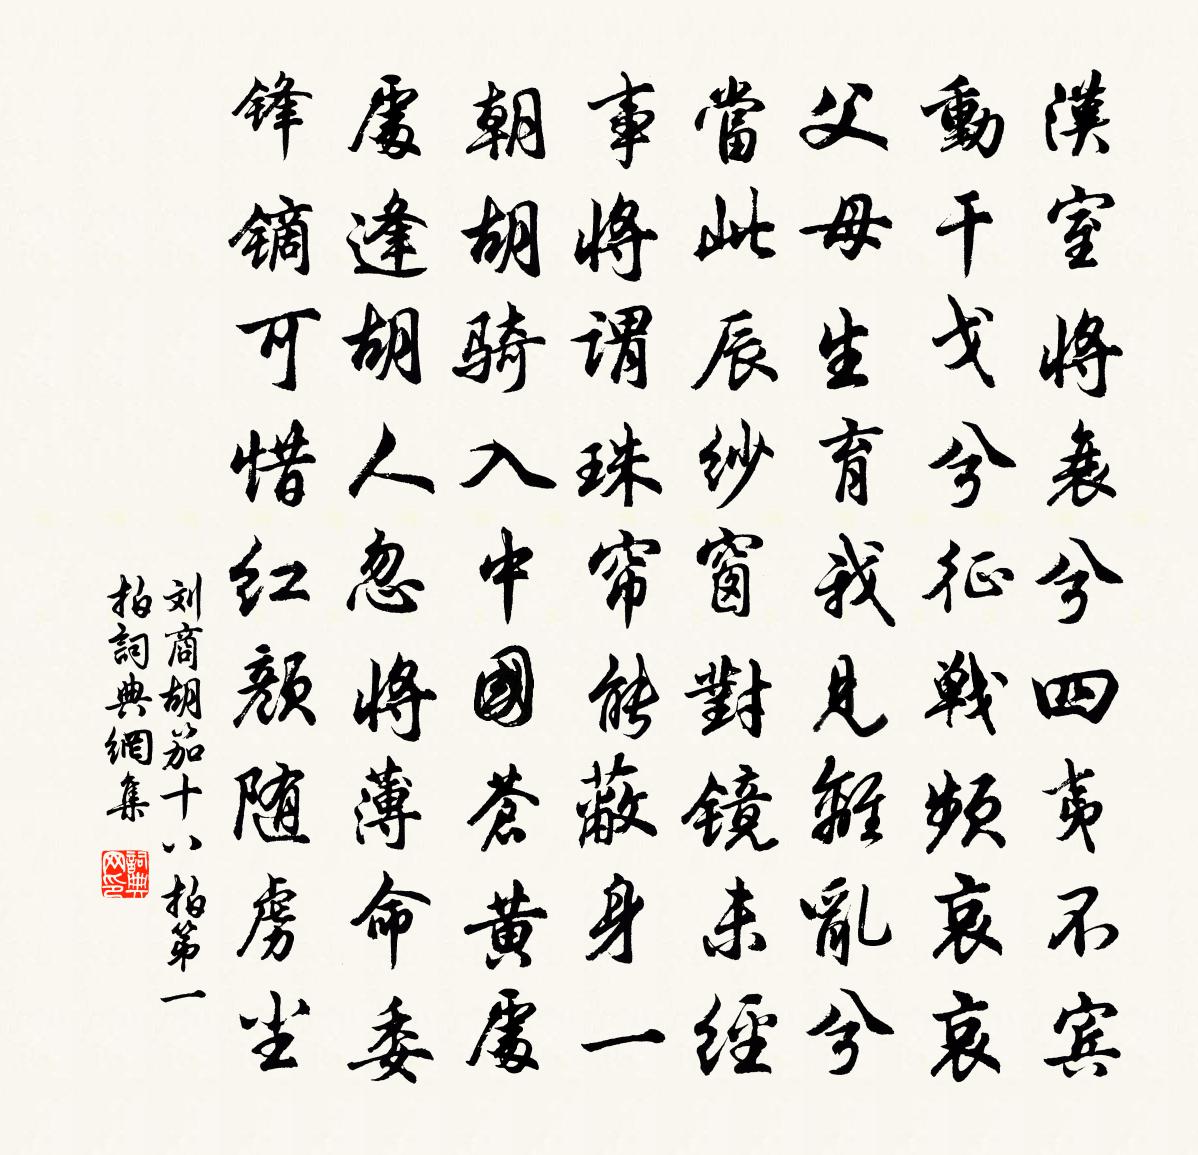 漢室将衰兮四夷不宾
動干戈兮征戦頻哀哀
父母生育我見離亂兮
當此辰紗窗對镜未經
事将謂珠帘能蔽身一
朝胡骑入中國蒼黄處
處逢胡人忽将薄命委
锋镝可惜红颜随虏尘
刘商胡笳十八拍第一
拍詞典網集
詞典网印